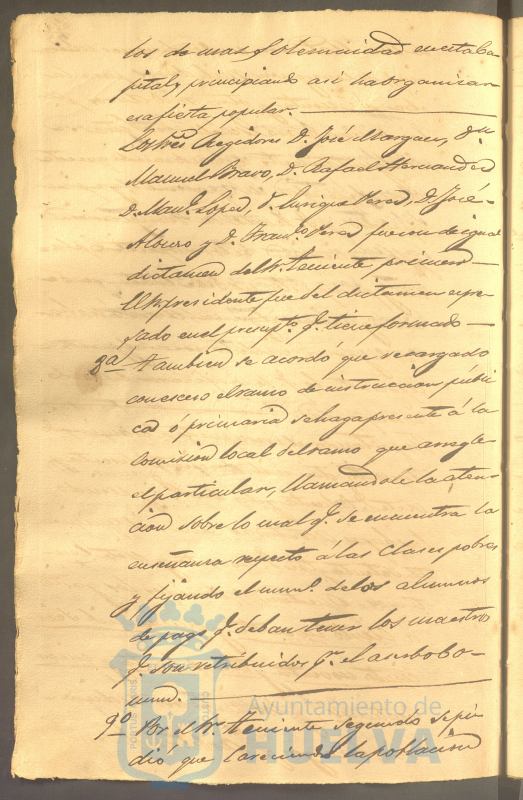 los de mas solemnidad en esta Ca-
pital, y principiando asi ha organizar
esa fiesta popular.
Los tres Regidores D. José Marquez, Dn
Manuel Bravo, D. Rafael Hernandez
D. Manl. Lopez, D. Enrique Perez, D. José
y D. Franco. Perez fueron de igual
dictamen del Sr. teniente primero
El Sr. presidente fue del dictamen espre-
sado en el presupto. qe. tiene formado
8a. tambien se acordó que recargado
con esceso el ramo de instruccion públi-
ca ó primaria se haga presente á la
Comision local del ramo que arregle
el particular, llamandole la aten-
cion sobre lo mal qe. se encuentra la
enseñanza respecto á las clases pobres
y fijando el numo. de los alumnos
de pago qe. deban tener los maestros
qe. son retribuidos pr. el
mun.
9o. Por el Sr. teniente segundo se pi-
dió que careciendo la poblacion
Ayuntamiento de
HUELVA